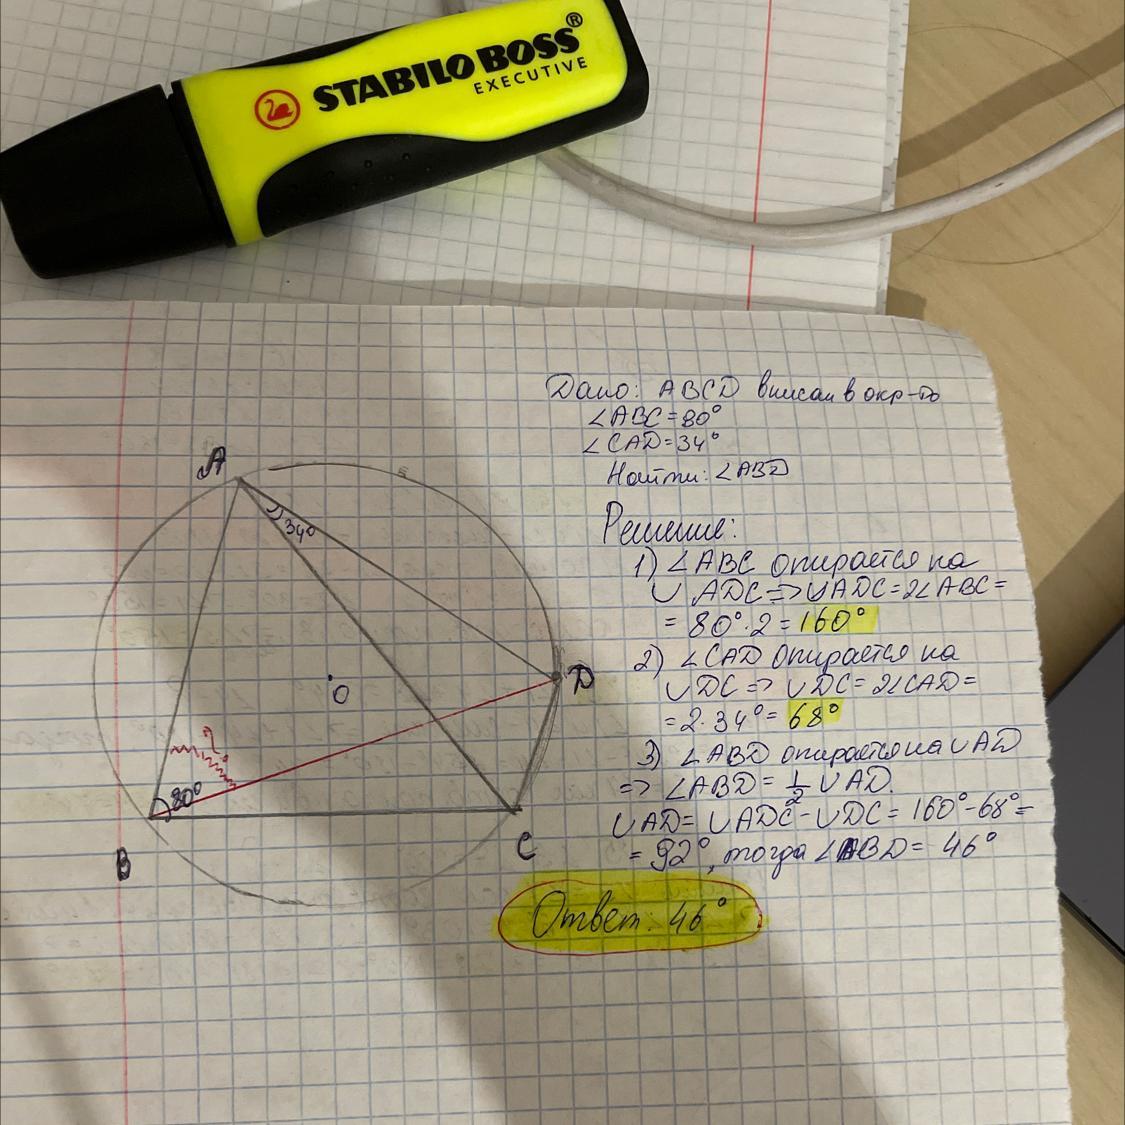 STABILO BOSS®
EXECUTIVE
Дано: ABCD вписан в окр-то
∠ABC=80°
∠CAD=34°
Найти: ∠ABD
Решение:
1) ∠ABC опирается на
∪ ADC => ∪ADC=2∠ABC=
= 80°·2=160°
2) ∠CAD опирается на
∪DC => ∪DC=2∠CAD=
=2·34°=68°
3) ∠ABD опирается на ∪AD
=> ∠ABD= 1/2 ∪AD.
∪AD= ∪ADC-∪DC= 160°-68°=
= 92°, тогда ∠ABD= 46°
Ответ: 46°
A
34°
D
O
?
80°
B
C